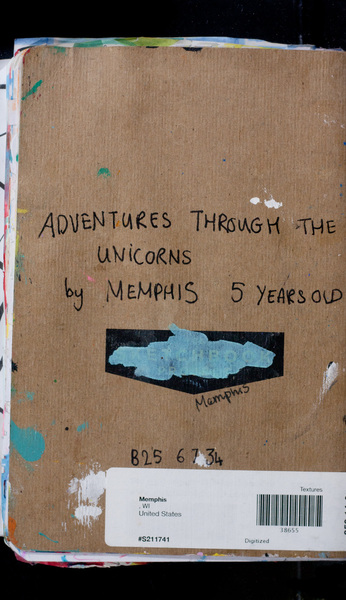 ADVENTURES THROUGH THE
UNICORNS
by MEMPHIS 5 YEARS OLD
Memphis
B25 6 7 34
Textures
Memphis
, WI
United States
18655
#S211741
Digitized